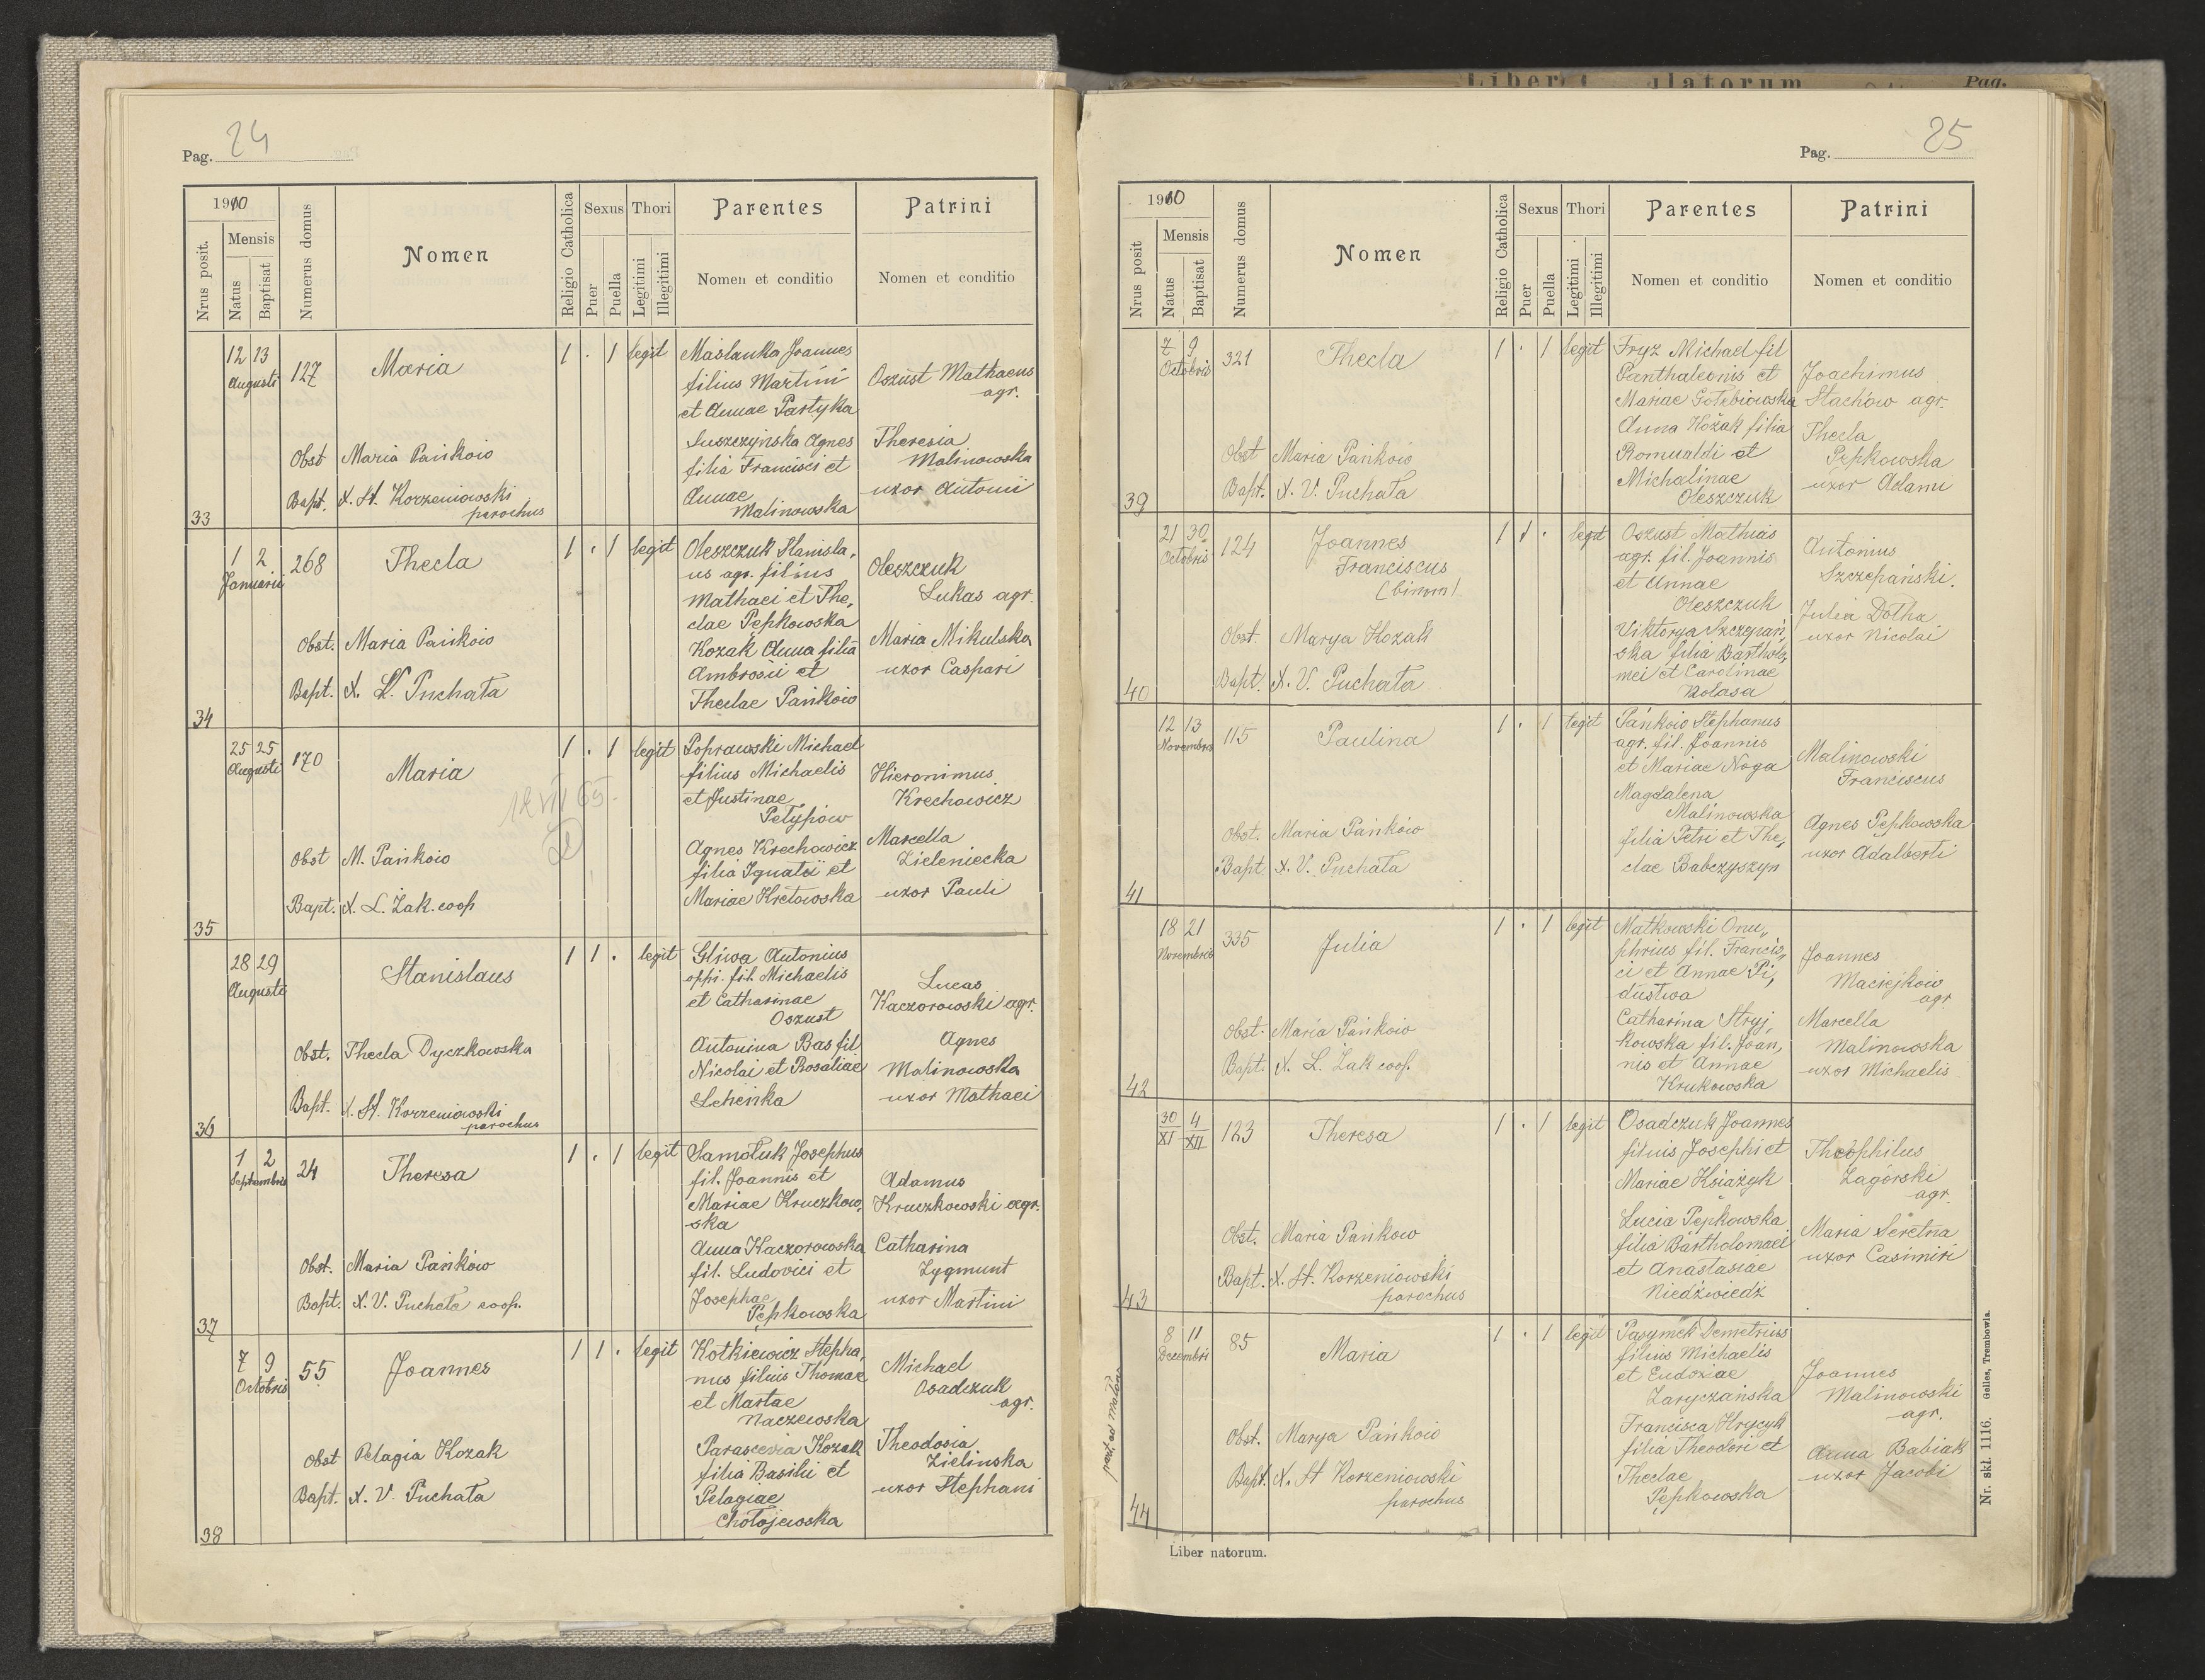 Liber natorum Pag.
Pag. 24
1910
Nrus posit.
Mensis
Natus
Baptisat
Numerus domus
Nomen
Religio Catholica
Sexus
Puer
Puella
Thori
Legitimi
Illegitimi
Parentes
Nomen et conditio
Patrini
Nomen et conditio
33
12 13
Augusti
127
Maria
1 . 1 legit
Maślanka Joannes
filius Martini
et Annae Partyka
Łuszczyńska Agnes
filia Francisci et
Annae
Malinowska
Oszust Mathaeus
agr.
Theresia
Malinowska
uxor Antonii
Obst Maria Pańków
Bapt. X. St. Korzeniowski
parochus
34
1 2
Januarii
268
Thecla
1 . 1 legit
Oleszczuk Stanisla,
us agr. filius
Mathaei et The,
clae Pępkowska
Kozak Anna filia
Ambrosii et
Theclae Pańków
Oleszczuk
Lukas agr.
Maria Mikulska
uxor Caspari
Obst. Maria Pańków
Bapt. X. V. Puchała
35
25 25
Augusti
170
Maria
1 . 1 legit
Poprawski Michael
filius Michaelis
et Justinae
Petypów
Agnes Krechowicz
filia Ignatii et
Mariae Kretowska
Hieronimus
Krechowicz
Marcella
Zieleniecka
uxor Pauli
Obst M. Pańków
Bapt. X. L. Żak. coop
36
28 29
Augusti
Stanislaus
1 1 . legit
Gliwa Antonius
oppi. fil. Michaelis
et Catharinae
Oszust
Antonina Bas fil
Nicolai et Rosaliae
Schenka
Lucas
Kaczorowski agr.
Agnes
Malinowska
uxor Mathaei
Obst. Thecla Dyczkowska
Bapt. X. St. Korzeniowski
parochus
37
1 2
Septembris
24
Theresa
1 . 1 legit
Samoluk Josephus
fil. Joannis et
Mariae Kruczkow,
ska
Anna Kaczorowska
fil. Ludovici et
Josephae
Pępkowska
Adamus
Kruczkowski agr.
Catharina
Zygmunt
uxor Martini
Obst. Maria Pańków
Bapt. X. V. Puchała coop.
38
7 9
Octobris
55
Joannes
1 1 . legit
Kotkiewicz Stepha,
nus filius Thomae
et Martae
Naczewska
Parascevia Kozak
filia Basilii et
Pelagiae
Chołojewska
Michael
Osadczuk
agr.
Theodosia
Zielinska
uxor Stephani
Obst Pelagia Kozak
Bapt. X. V. Puchała
Pag. 25
1910
Nrus posit
Mensis
Natus
Baptisat
Numerus domus
Nomen
Religio Catholica
Sexus
Puer
Puella
Thori
Legitimi
Illegitimi
Parentes
Nomen et conditio
Patrini
Nomen et conditio
39
7 9
Octobris
321
Thecla
1 . 1 legit
Fryz Michael fil
Panthaleonis et
Mariae Gołębiowska
Anna Kozak filia
Romualdi et
Michalinae
Oleszczuk
Joachimus
Stachów agr.
Thecla
Pępkowska
uxor Adami
Obst Maria Pańków
Bapt. X. V. Puchała
40
21 30
Octobris
124
Joannes
Franciscus
(binom)
1 1 . legit
Oszust Mathias
agr. fil. Joannis
et Annae
Oleszczuk
Viktorya Szczepań,
ska filia Bartholo,
mei et Carolinae
Kolasa
Antonius
Szczepański.
Julia Dołha
uxor Nicolai
Obst. Marya Kozak
Bapt. X. V. Puchała
41
12 13
Novembris
115
Paulina
1 . 1 legit
Pańków Stephanus
agr. fil. Joannis
et Mariae Noga
Magdalena
Malinowska
filia Petri et The,
clae Babczyszyn
Malinowski
Franciscus
Agnes Pępkowska
uxor Adalberti
Obst. Maria Pańków
Bapt. X. V. Puchała
42
18 21
Novembris
335
Julia
1 . 1 legit
Matkowski Onu,,
phrius fil. Francis,
ci et Annae Pi,
dustwa
Catharina Stryj,
kowska fil. Joan,
nis et Annae
Krukowska
Joannes
Maciejków
agr
Marcella
Malinowska
uxor Michaelis
Obst. Maria Pańków
Bapt. X. L. Żak coop.
43
30 4
XI XII
123
Theresa
1 . 1 legit
Osadczuk Joannes
filius Josephi et
Mariae Książyk
Lucia Pępkowska
filia Bartholomaei
et Anastasiae
Niedźwiedź
Theophilus
Zagórski
agr.
Maria Seretna
uxor Casimiri
Obst. Maria Pańkow
Bapt. X. St. Korzeniowski
parochus
44
8 11
Decembris
85
Maria
1 . 1 legit
Pasymek Demetrius
filius Michaelis
et Eudoxiae
Zaryczańska
Francisca Hrycyk
filia Theodori et
Theclae
Pępkowska
Joannes
Malinowski
agr.
Anna Babiak
uxor Jacobi
Obst. Marya Pańków
Bapt. X. St Korzeniowski
parochus
Liber natorum.
Nr. skł. 1116. Gelles, Trembowla.